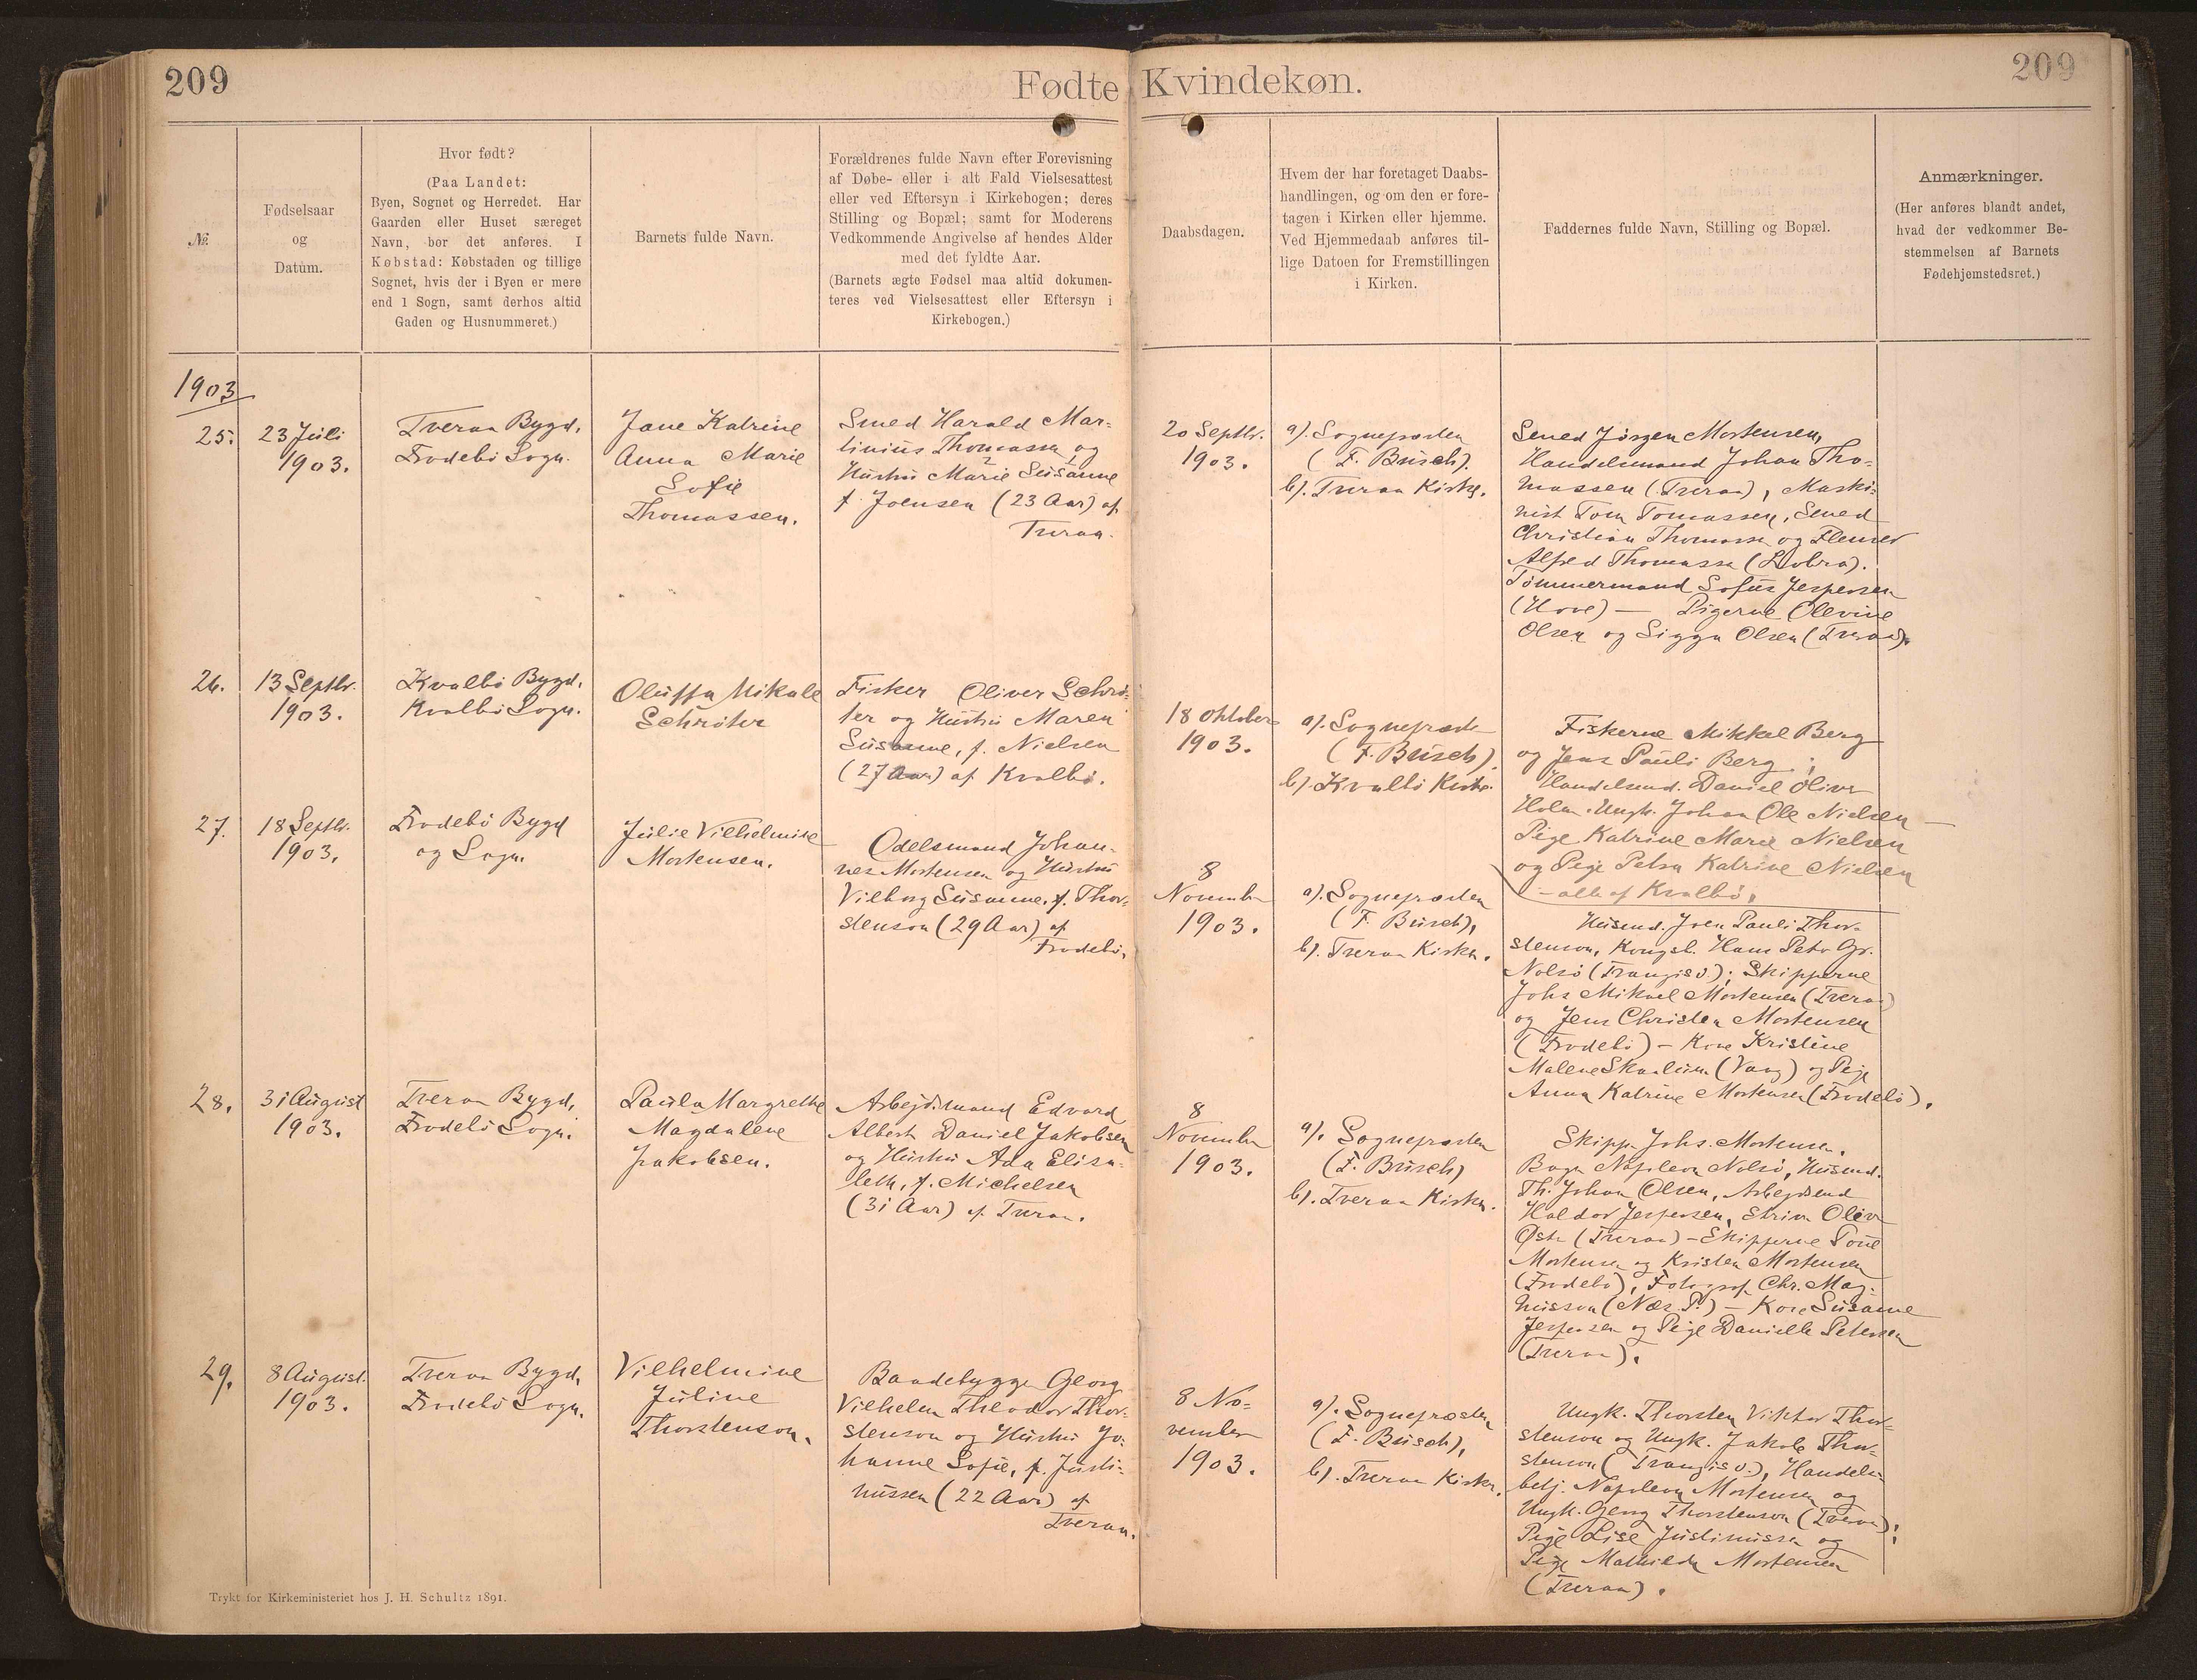 209
Fødte Kvindekøn.
209
№
Fødselsaar
og
Datum.
Hvor født?
(Paa Landet:
Byen, Sognet og Herredet. Har
Gaarden eller Huset særeget
Navn, bør det anføres. I
Købstad: Købstaden og tillige
Sognet, hvis der i Byen er mere
end 1 Sogn, samt derhos altid
Gaden og Husnummeret.)
Barnets fulde Navn.
Forældrenes fulde Navn efter Forevisning
af Døbe- eller i alt Fald Vielsesattest
eller ved Eftersyn i Kirkebogen; deres
Stilling og Bopæl; samt for Moderens
Vedkommende Angivelse af hendes Alder
med det fyldte Aar.
(Barnets ægte Fødsel maa altid dokumen-
teres ved Vielsesattest eller Eftersyn i
Kirkebogen.)
Daabsdagen.
Hvem der har foretaget Daabs-
handlingen, og om den er fore-
tagen i Kirken eller hjemme.
Ved Hjemmedaab anføres til-
lige Datoen for Fremstillingen
i Kirken.
Faddernes fulde Navn, Stilling og Bopæl.
Anmærkninger.
(Her anføres blandt andet,
hvad der vedkommer Be-
stemmelsen af Barnets
Fødehjemstedsret.)
1903
25.
23 Juli
1903.
Tveraa Bygd,
Frodebø Sogn.
Jane Katrine
Anna Marie
Sofie
Thomassen.
Smed Harald Mar-
tinius Thomassen og
Hustru Marie Susanne
f. Joensen (23 Aar) af
Tveraa.
20 Septbr.
1903.
a). Sognepræsten
(F. Busch).
b). Tveraa Kirke.
Smed Jørgen Mortensen,
Handelsmand Johan Tho-
massen (Tveraa), Maski-
nist Tom Tomassen, Smed
Christian Thomassen og
Alfred Thomassen
Tømmermand Sofus Jespersen
(Hove) — Pigerne Olevine
Olsen og Sigga Olsen (Tveraa).
26.
13 Septbr.
1903.
Kvalbø Bygd,
Kvalbø Sogn.
Oluffa Mikale
Schrøter
Fisker Oliver Schrø-
ter og Hustru Maren
Susanne, f. Nielsen
(27 Aar) af Kvalbø.
18 Oktober
1903.
a). Sognepræsten
(F. Busch).
b). Kvalbø Kirke.
Fiskerne Mikkel Berg
og Jens Pauli Berg;
Handelsmd. Daniel Oliver
Holm. Ungk. Johan Ole Nielsen —
Pige Katrine Marie Nielsen
og Pige Petra Katrine Nielsen
— alle af Kvalbø.
27.
18 Septbr.
1903.
Frodebø Bygd
og Sogn.
Julie Vilhelmine
Mortensen.
Odelsmand Johan-
nes Mortensen og Hustru
Vilborg Susanne, f. Thor-
stenson (29 Aar) af
Frodebø.
8
November
1903.
a). Sognepræsten
(F. Busch),
b). Tveraa Kirke.
Husmd. Joen Pauli Thor-
stenson, Kongsb. Hans Peter Gr.
Nolsø (Trangisv.); Skipperne
Johs Mikael Mortensen (Tveraa)
og Jens Christen Mortensen
(Frodebø) — Kone Kristine
Malene Skaalum (Vaag) og Pige
Anna Katrine Mortensen (Frodebø).
28.
31 August
1903.
Tveraa Bygd,
Frodebø Sogn.
Paula Margrethe
Magdalene
Jakobsen.
Arbejdsmand Edvard
Albert Daniel Jakobsen
og Hustru Ada Elisa-
beth, f. Michelsen
(31 Aar) af Tveraa.
8
November
1903.
a). Sognepræsten
(F. Busch)
b). Tveraa Kirke.
Skipp. Johs. Mortensen,
Bager Napoleon Nolsø, Husmd.
Th. Johan Olsen, Arbejdsmd
Haldor Jespersen, Skriver Oliver
Øster (Tveraa) — Skipperne Poul
Mortensen og Kristen Mortensen
(Frodebø), Fotograf Chr. Mag-
nusson (Næs P.) — Kone Susanne
Jespersen og Pige Danielle Petersen
(Tveraa).
29.
8 August.
1903.
Tveraa Bygd,
Frodebø Sogn.
Vilhelmine
Juline
Thorstenson.
Baadebygger Georg
Vilhelm Theodor Thor-
stenson og Hustru Jo-
hanne Sofie, f. Justi-
nussen (22 Aar) af
Tveraa.
8 No-
vember
1903.
a). Sognepræsten
(F. Busch),
b). Tveraa Kirke.
Ungk. Thorsten Viktor Thor-
stenson og Ungk. Jakob Thor-
stenson (Trangisv.), Handels-
betj. Napoleon Mortensen og
Ungk. Georg Thorstenson (Tveraa);
Pige Lise Justinussen og
Pige Mathilda Mortensen
(Tveraa).
Trykt for Kirkeministeriet hos J. H. Schultz 1891.